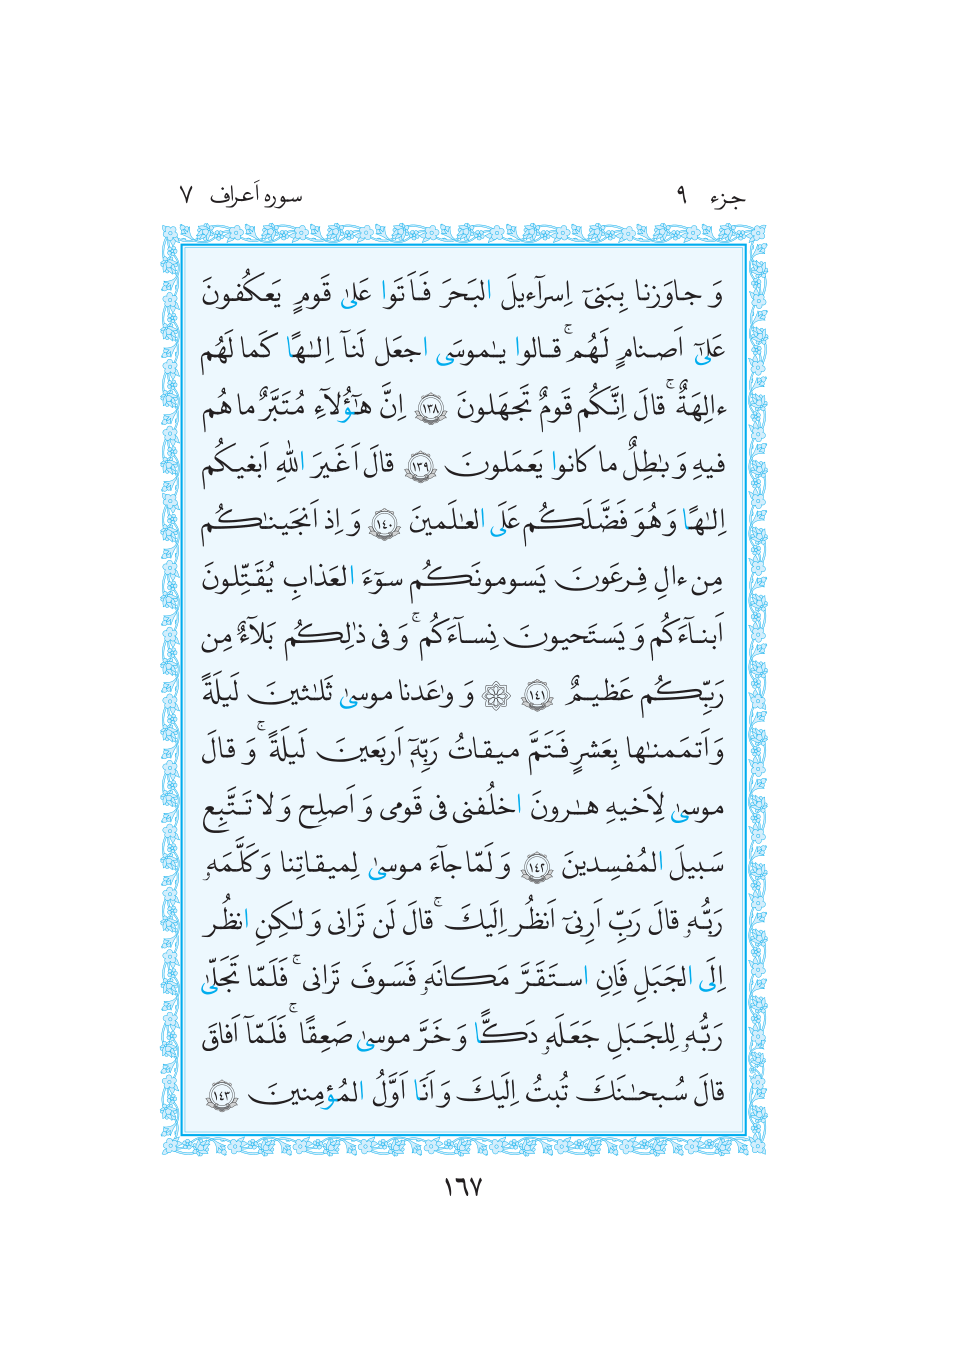 جزء ۹
سوره اَعراف ۷
وَ جاوَزنا بِبَنیٓ اِسرآءیلَ البَحرَ فَاَتَوا عَلیٰ قَومٍ یَعکُفونَ
عَلیٰٓ اَصنامٍ لَهُم ۚ قالوا یٰموسَی اجعَل لَنآ اِلٰهًا کَما لَهُم
ءالِهَةٌ ۚ قالَ اِنَّکُم قَومٌ تَجهَلونَ ﴿۱۳۸﴾ اِنَّ هٰٓؤُلآءِ مُتَبَّرٌ ما هُم
فیهِ وَ بٰطِلٌ ما کانوا یَعمَلونَ ﴿۱۳۹﴾ قالَ اَغَیرَ اللهِ اَبغیکُم
اِلٰهًا وَ هُوَ فَضَّلَکُم عَلَی العٰلَمینَ ﴿۱۴۰﴾ وَ اِذ اَنجَینٰکُم
مِن ءالِ فِرعَونَ یَسومونَکُم سوٓءَ العَذابِ یُقَتِّلونَ
اَبنآءَکُم وَ یَستَحیونَ نِسآءَکُم ۚ وَ فی ذٰلِکُم بَلآءٌ مِن
رَبِّکُم عَظیمٌ ﴿۱۴۱﴾ وَ وٰعَدنا موسیٰ ثَلٰثینَ لَیلَةً
وَ اَتمَمنٰها بِعَشرٍ فَتَمَّ میقاتُ رَبِّهٖٓ اَربَعینَ لَیلَةً ۚ وَ قالَ
موسیٰ لِاَخیهِ هٰرونَ اخلُفنی فی قَومی وَ اَصلِح وَ لا تَتَّبِع
سَبیلَ المُفسِدینَ ﴿۱۴۲﴾ وَ لَمّا جآءَ موسیٰ لِمیقاتِنا وَ کَلَّمَهۥ
رَبُّهۥ قالَ رَبِّ اَرِنیٓ اَنظُر اِلَیکَ ۚ قالَ لَن تَرانی وَ لٰکِنِ انظُر
اِلَی الجَبَلِ فَاِنِ استَقَرَّ مَکانَهۥ فَسَوفَ تَرانی ۚ فَلَمّا تَجَلّیٰ
رَبُّهۥ لِلجَبَلِ جَعَلَهۥ دَکًّا وَ خَرَّ موسیٰ صَعِقًا ۚ فَلَمّآ اَفاقَ
قالَ سُبحٰنَکَ تُبتُ اِلَیکَ وَ اَنَا اَوَّلُ المُؤمِنینَ ﴿۱۴۳﴾
۱۶۷